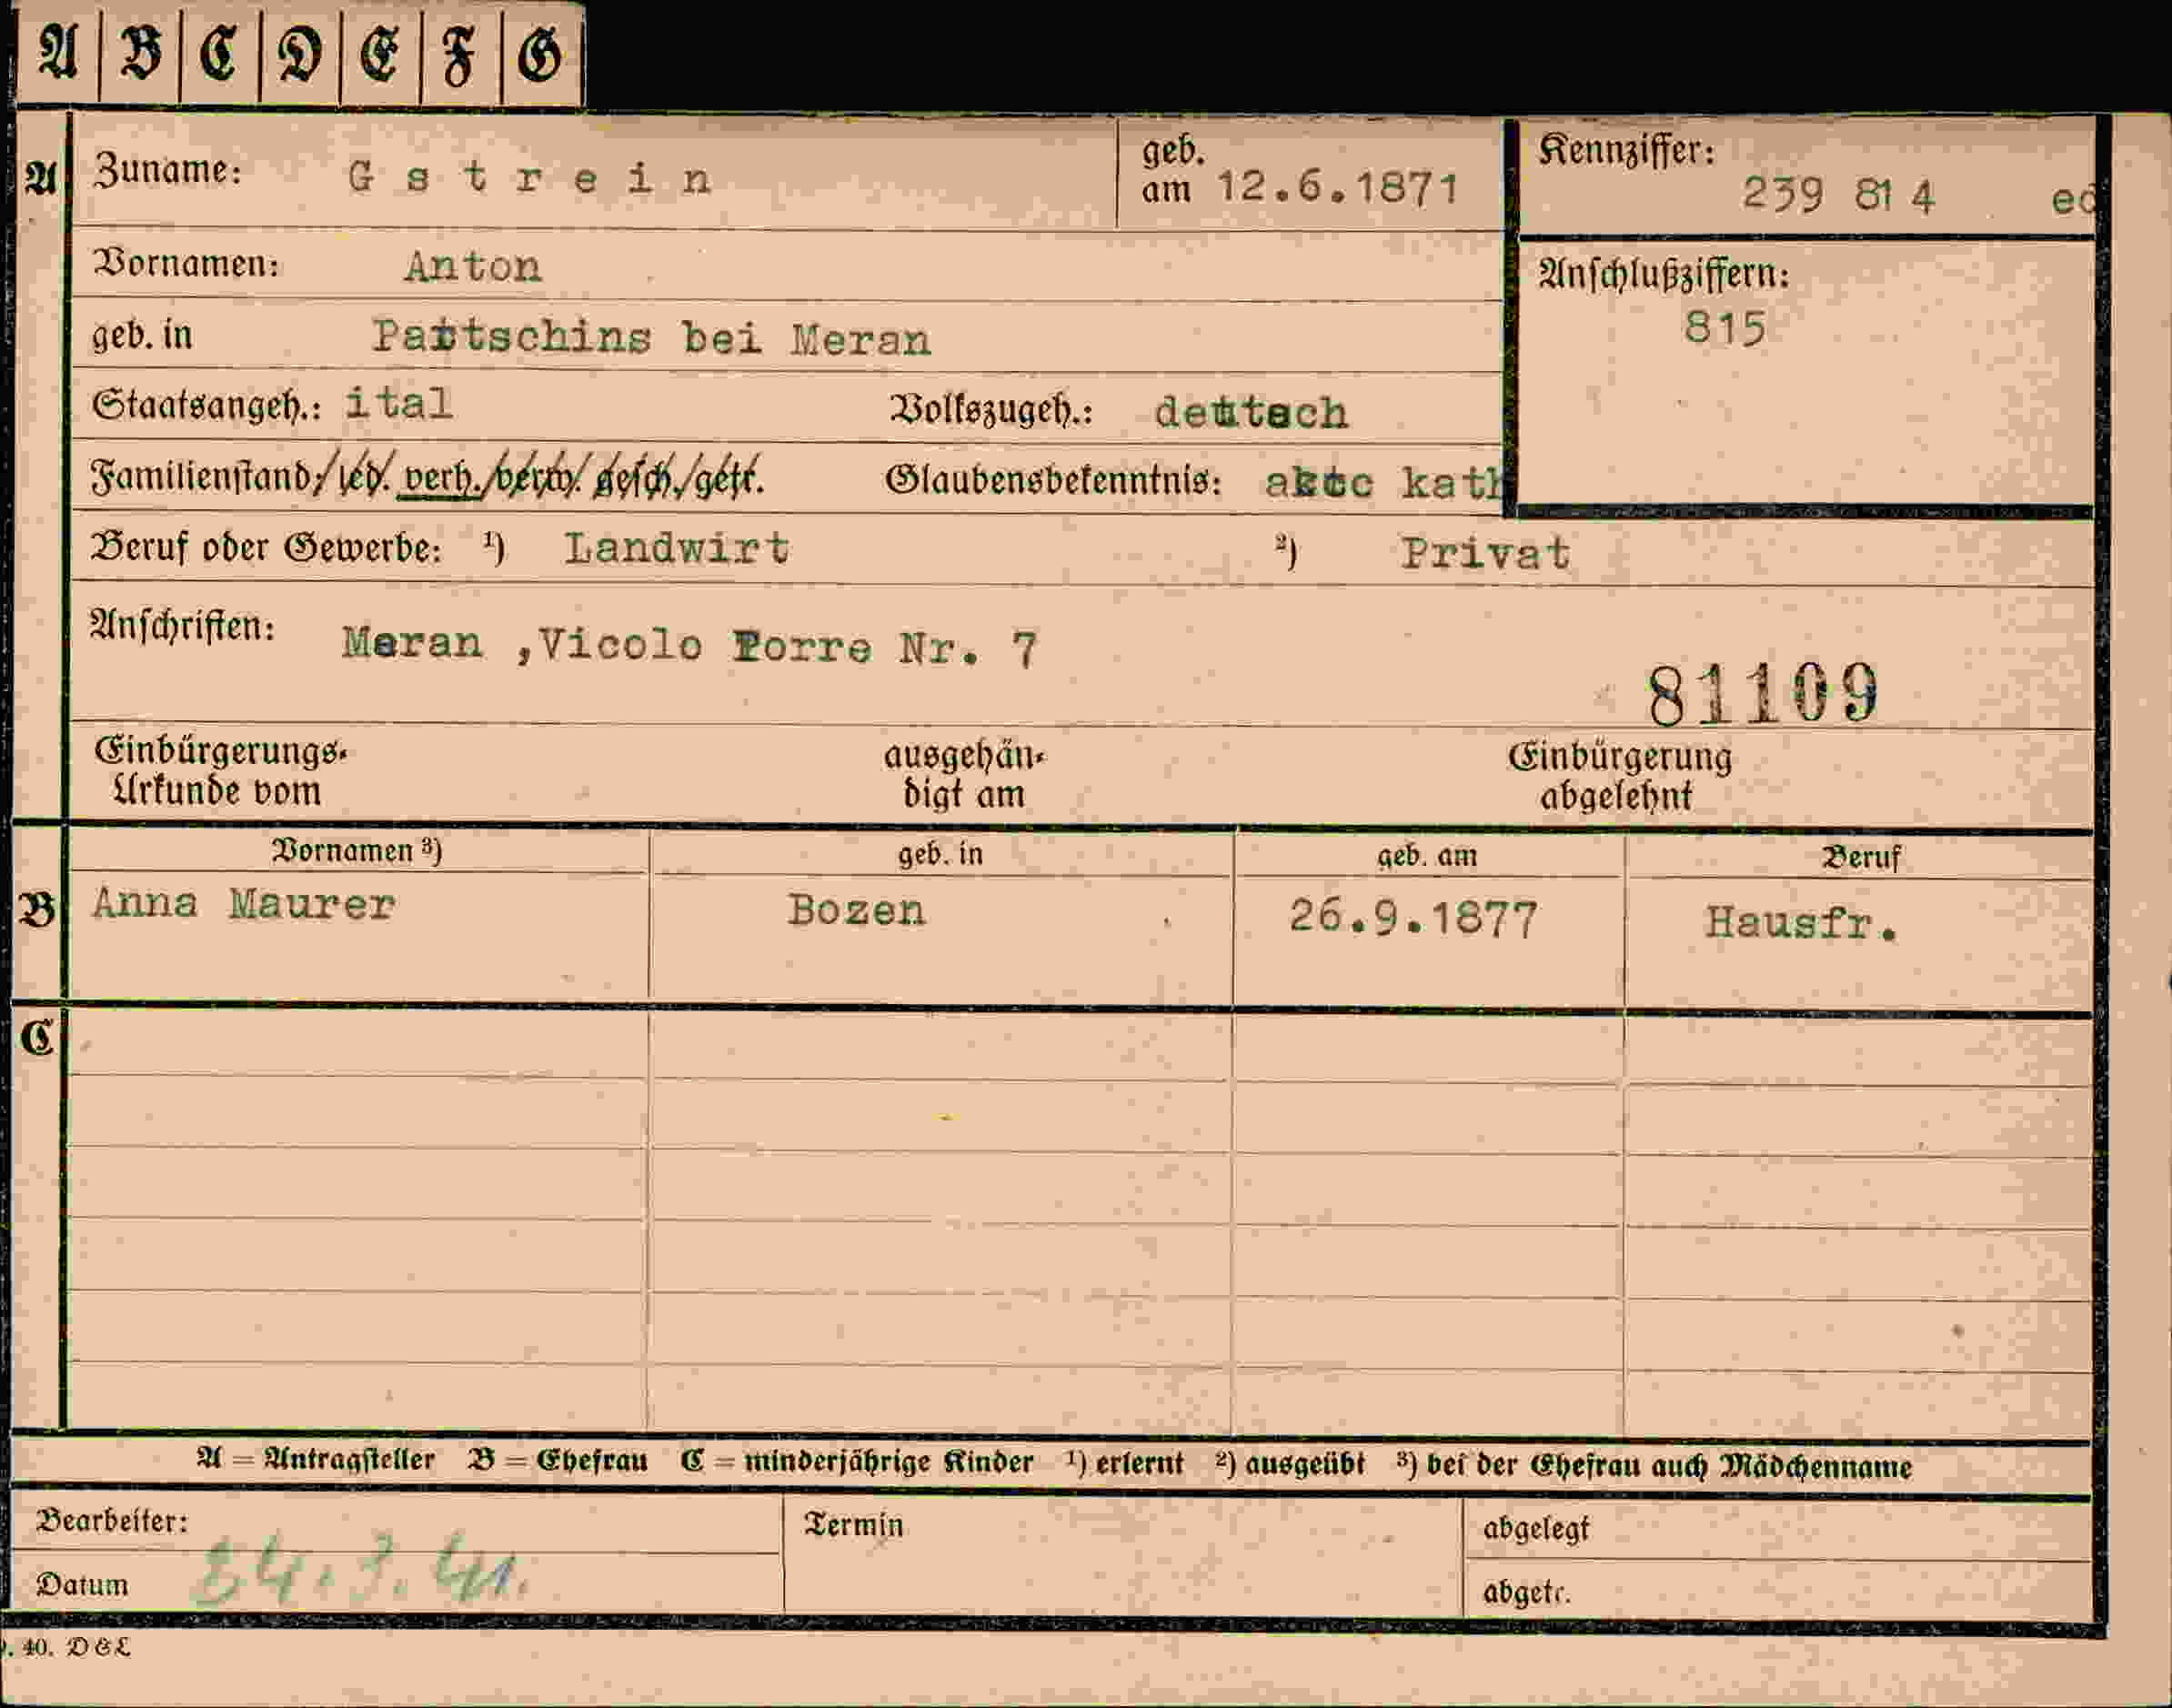 A B C D E F G
A Zuname: Gstrein geb. am 12.6.1871 Kennziffer: 239 814
Vornamen: Anton Anschlußziffern: 815
geb. in Partschins bei Meran
Staatsangeh.: ital Volkszugeh.: deutsch
Familienstand: led. verh. verw. gesch. getr. Glaubensbekenntnis: kath
Beruf oder Gewerbe: ¹) Landwirt ²) Privat
Anschriften: Meran ,Vicolo Porre Nr. 7
81109
Einbürgerungs-Urkunde vom ausgehändigt am Einbürgerung abgelehnt
Vornamen ³) geb. in geb. am Beruf
B Anna Maurer Bozen 26.9.1877 Hausfr.
C
A = Antragsteller B = Ehefrau C = minderjährige Kinder ¹) erlernt ²) ausgeübt ³) bei der Ehefrau auch Mädchenname
Bearbeiter: Termin abgelegt
Datum abgetr.
40. D&L